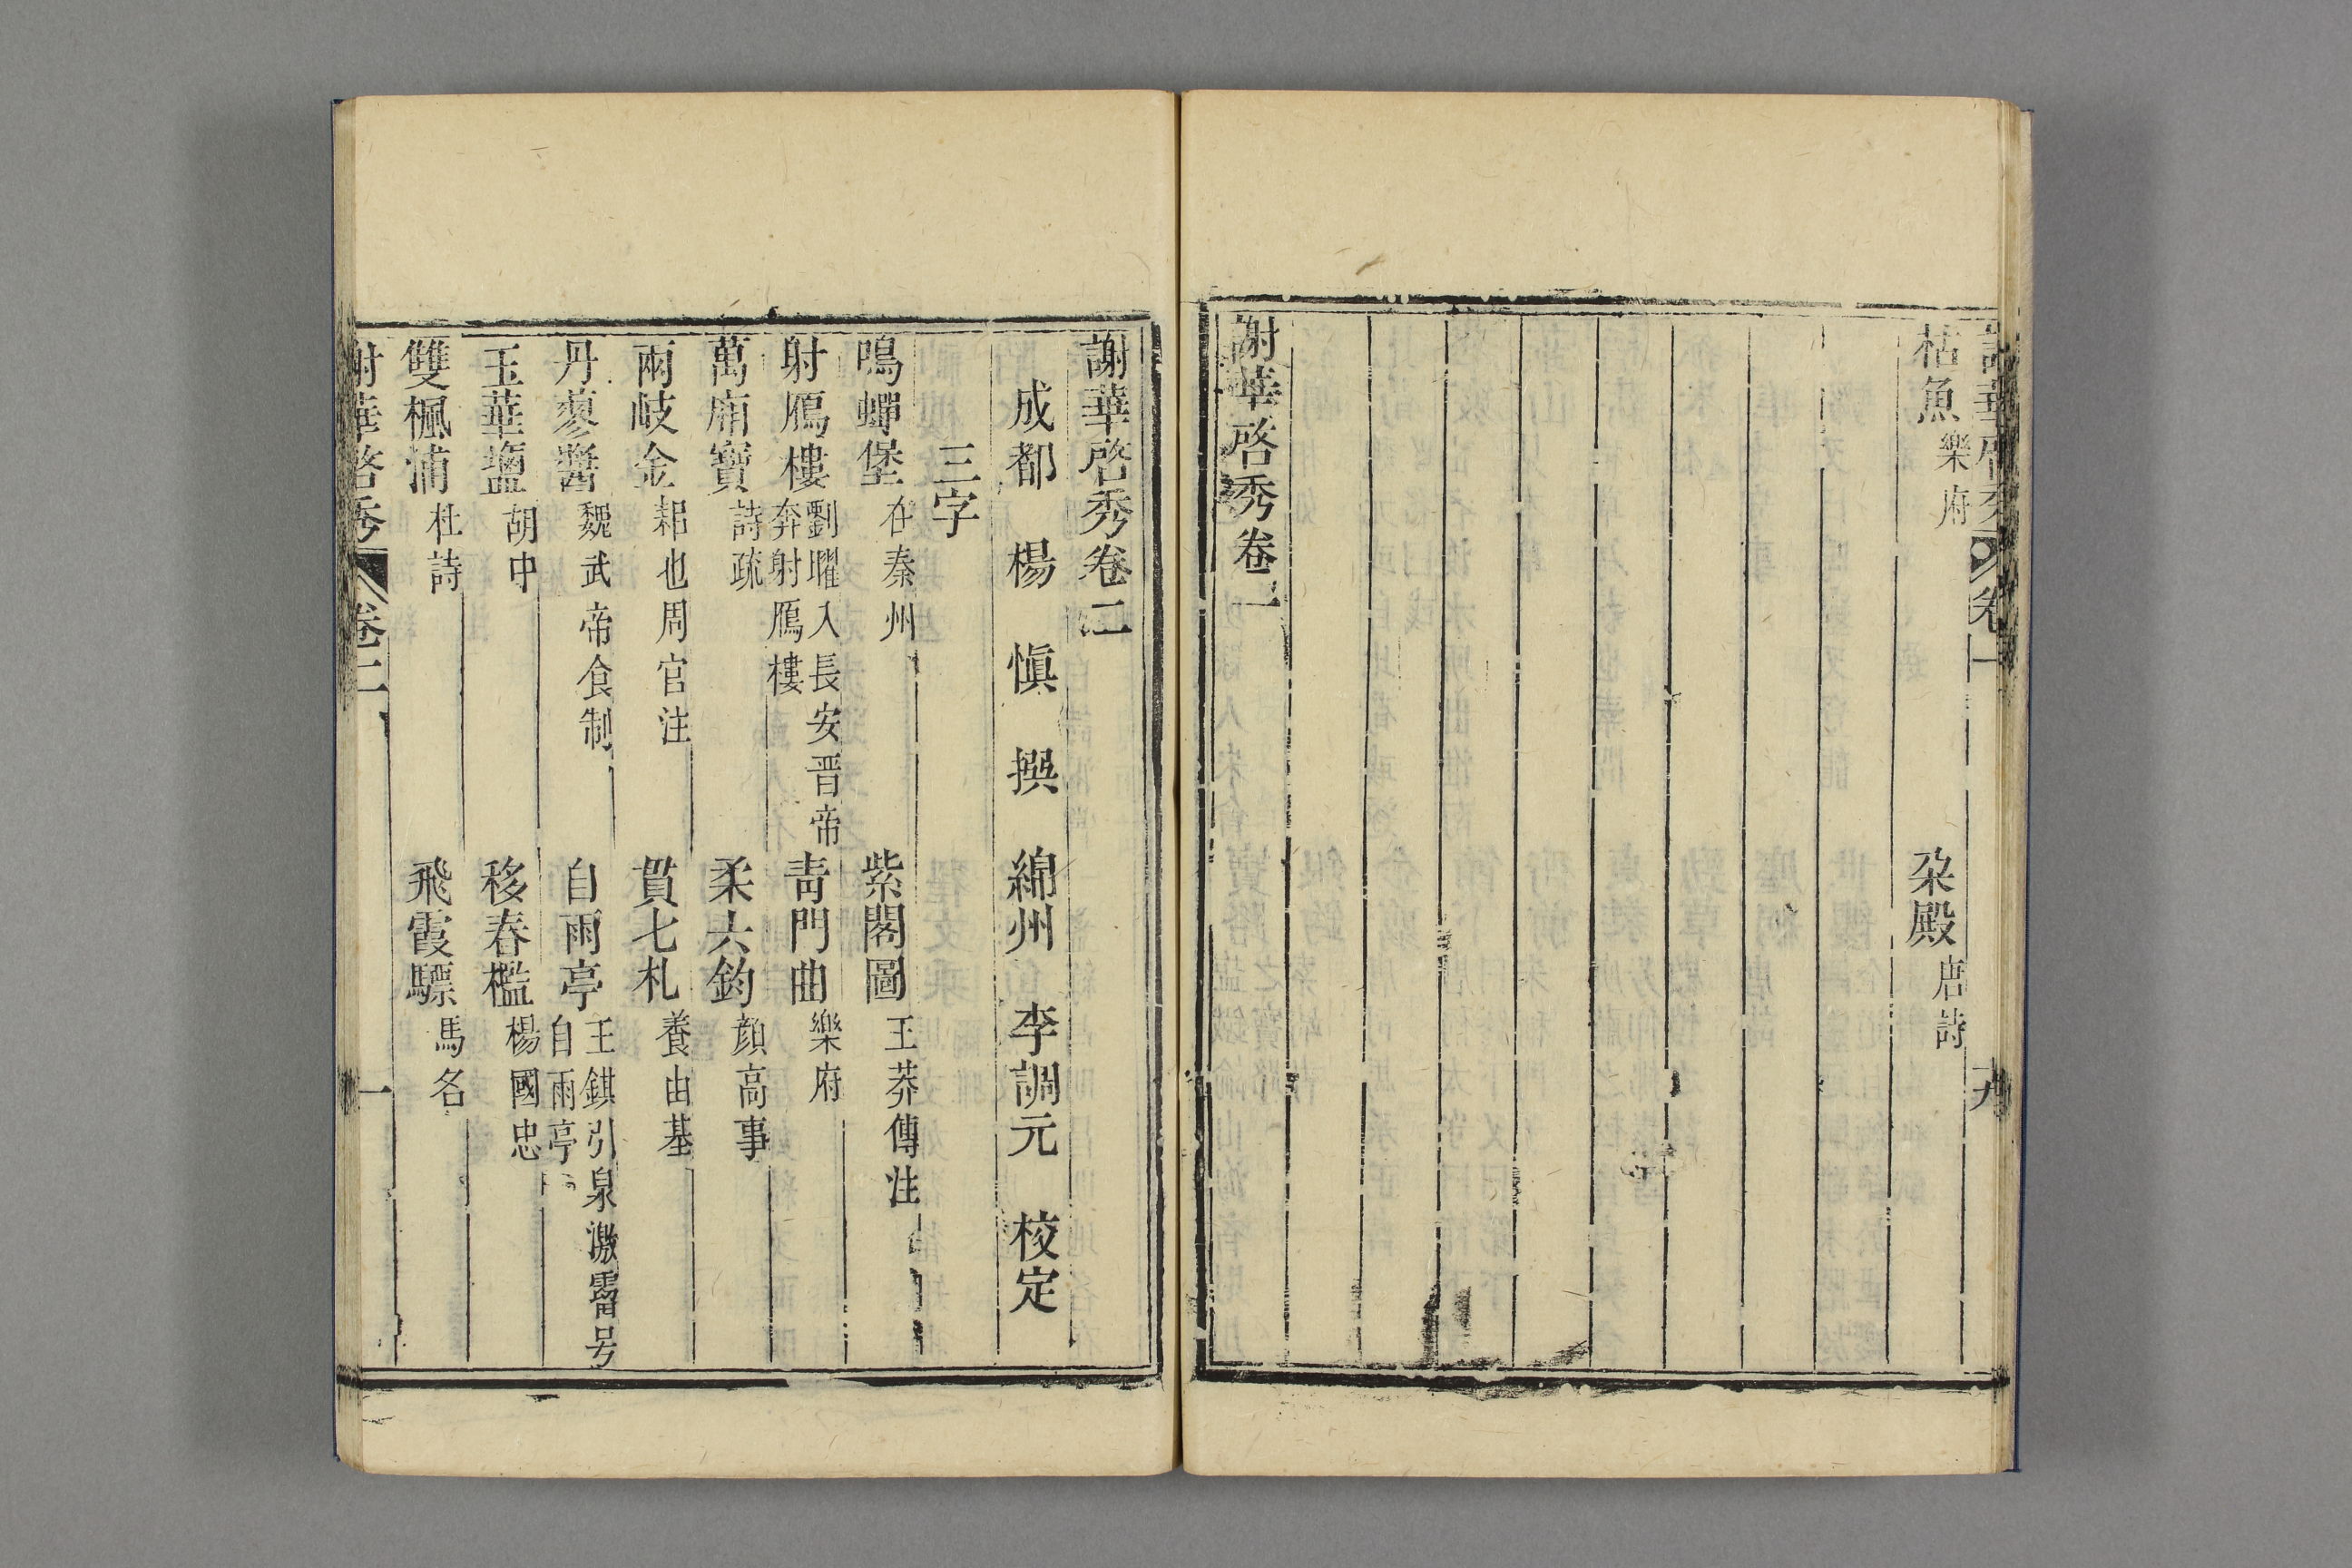 謝華啓秀 卷一 十九
枯魚 樂府 朶殿 唐詩
謝華啓秀卷一
謝華啓秀卷二
成都 楊 愼 撰 綿州 李調元 校定
三字
鳴蟬堡 在秦州 紫閣圖 王莽傳注
射鴈樓 劉曜入長安晋帝奔射鴈樓 青門曲 樂府
萬廟寶 詩疏 柔六鈞 顏高事
兩歧金 耜也周官注 貫七札 養由基
丹蓼醬 魏武帝食制 自雨亭 王鉷引泉激霤号自雨亭
玉華鹽 胡中 移春檻 楊國忠
雙楓浦 杜詩 飛霞驃 馬名
謝華啓秀 卷二 一